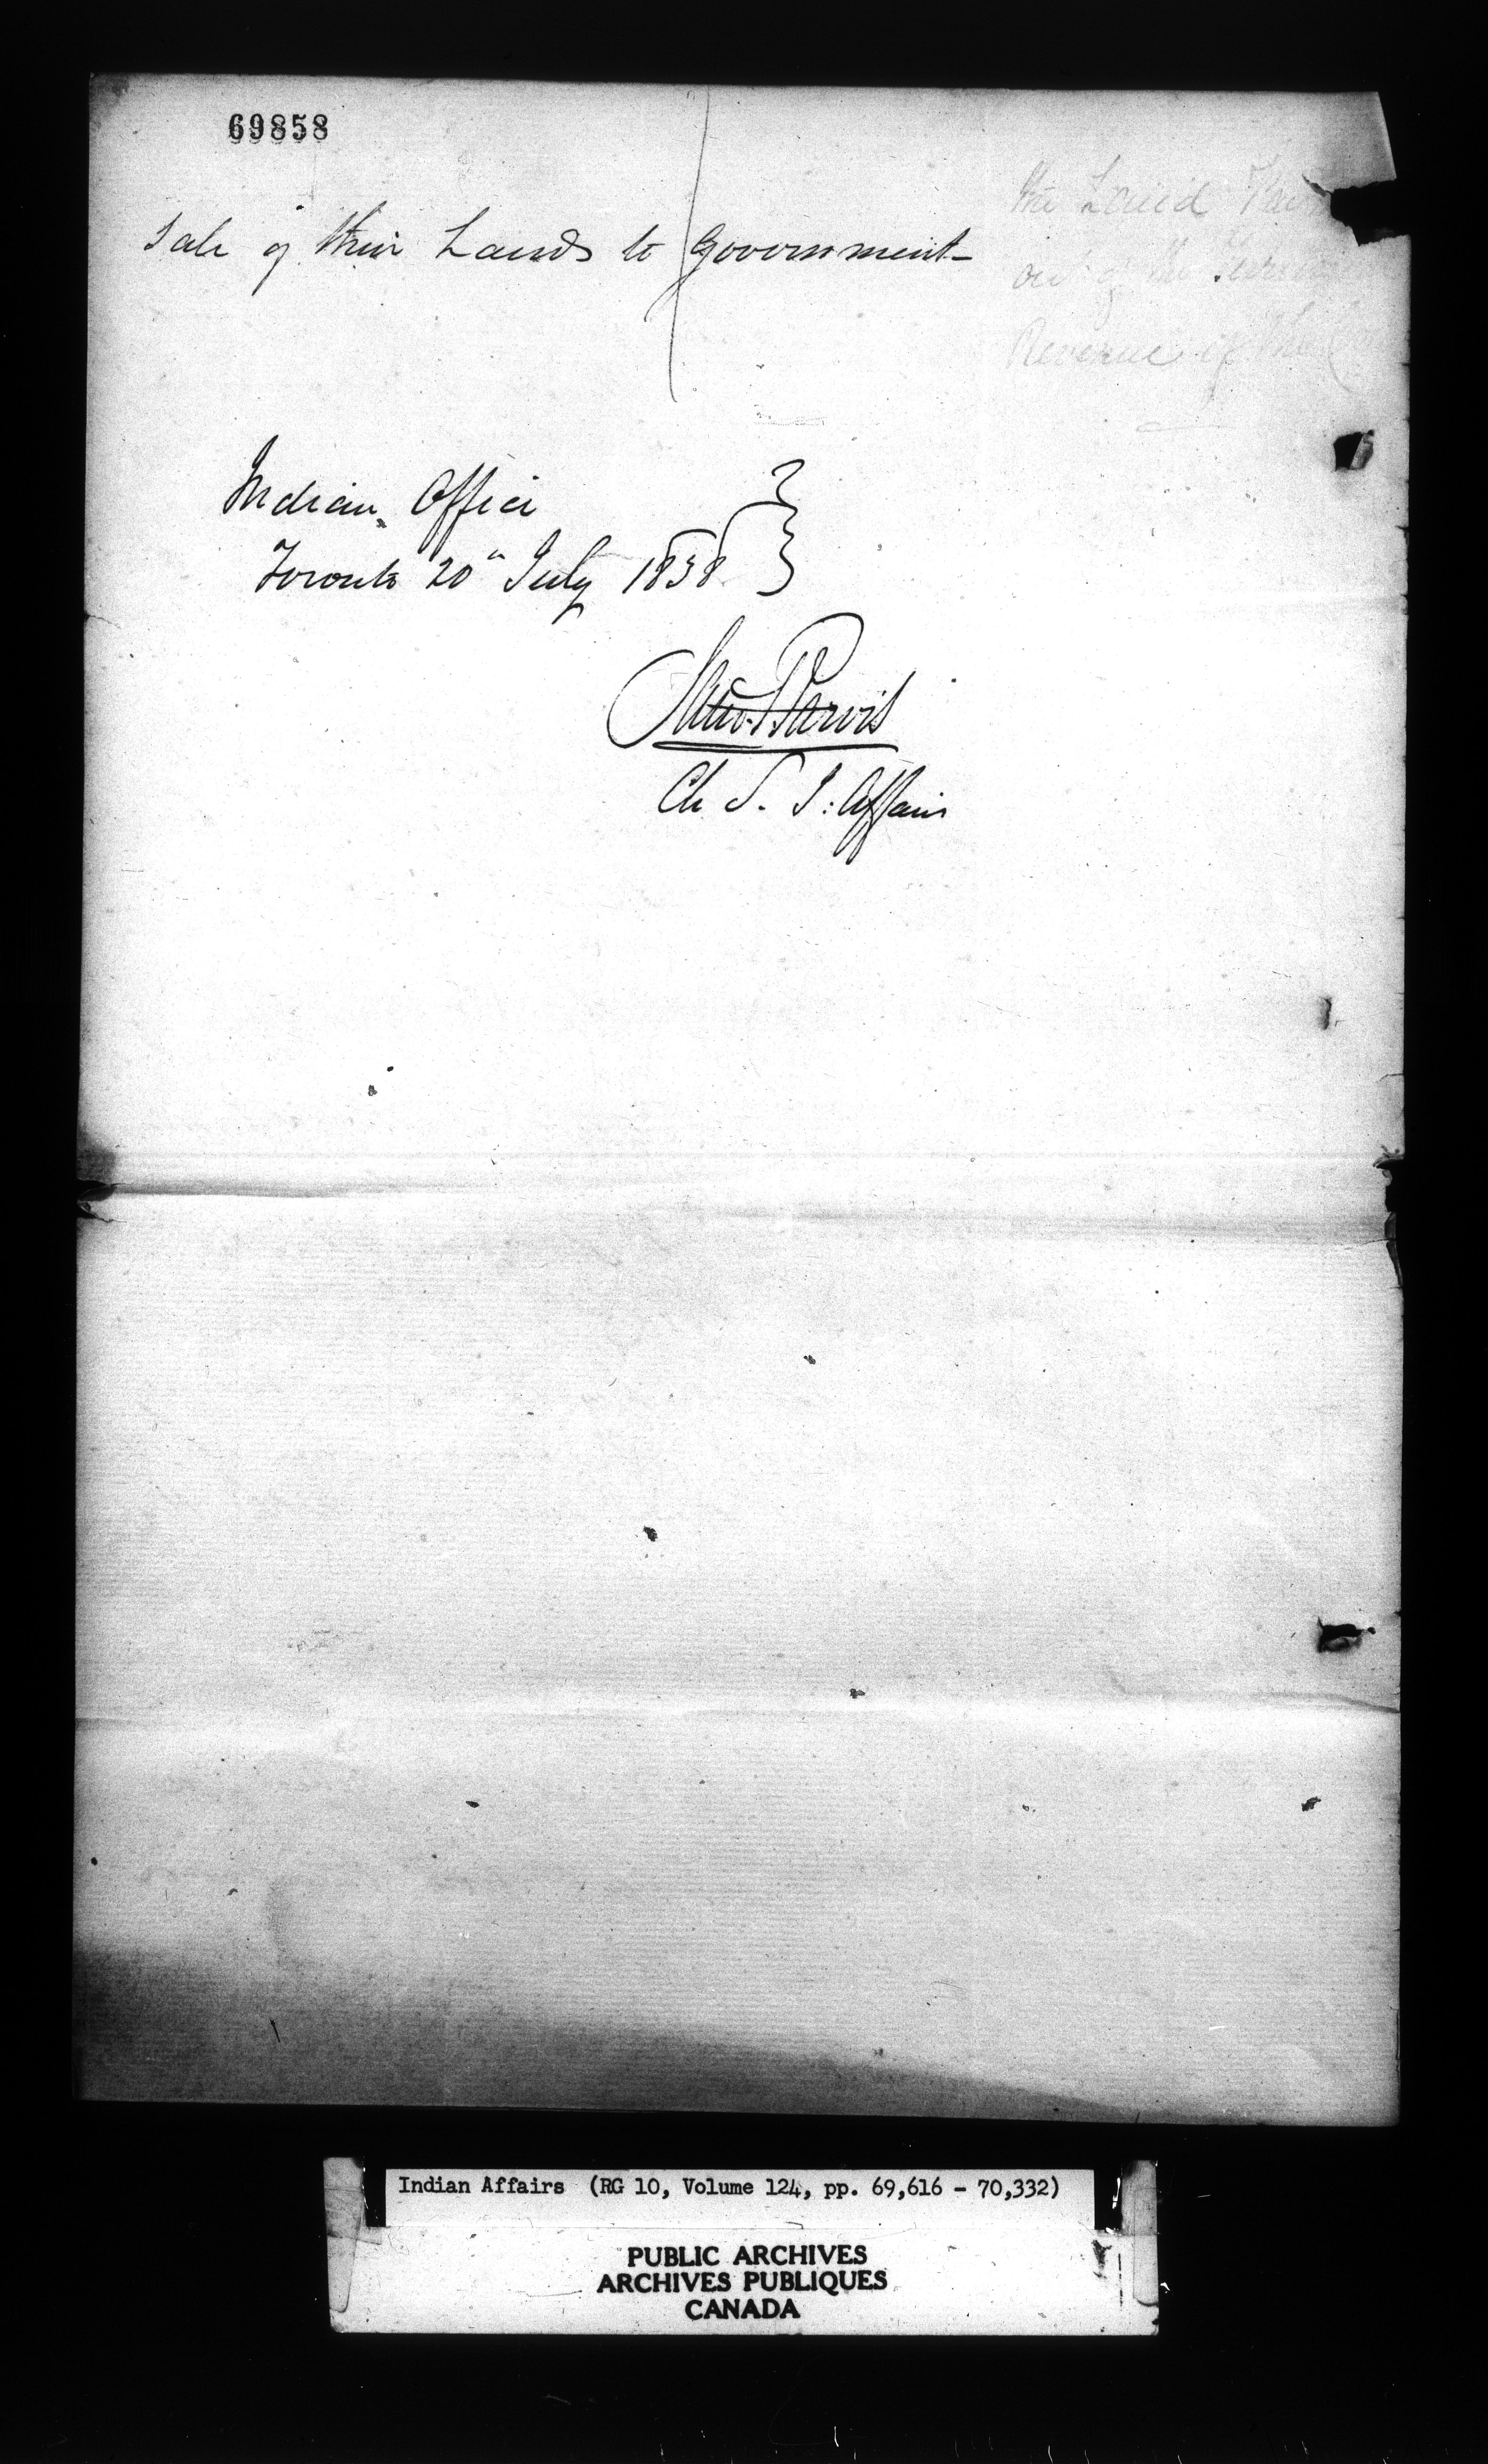 69858
Sale of their Lands to Government
the Land
out of the
Revenue of the
Indian Office
Toronto 20th July 1838
Saml. P. Jarvis
Ch S. I: Affairs
Indian Affairs (RG 10, Volume 124, pp. 69,616 - 70,332)
PUBLIC ARCHIVES
ARCHIVES PUBLIQUES
CANADA